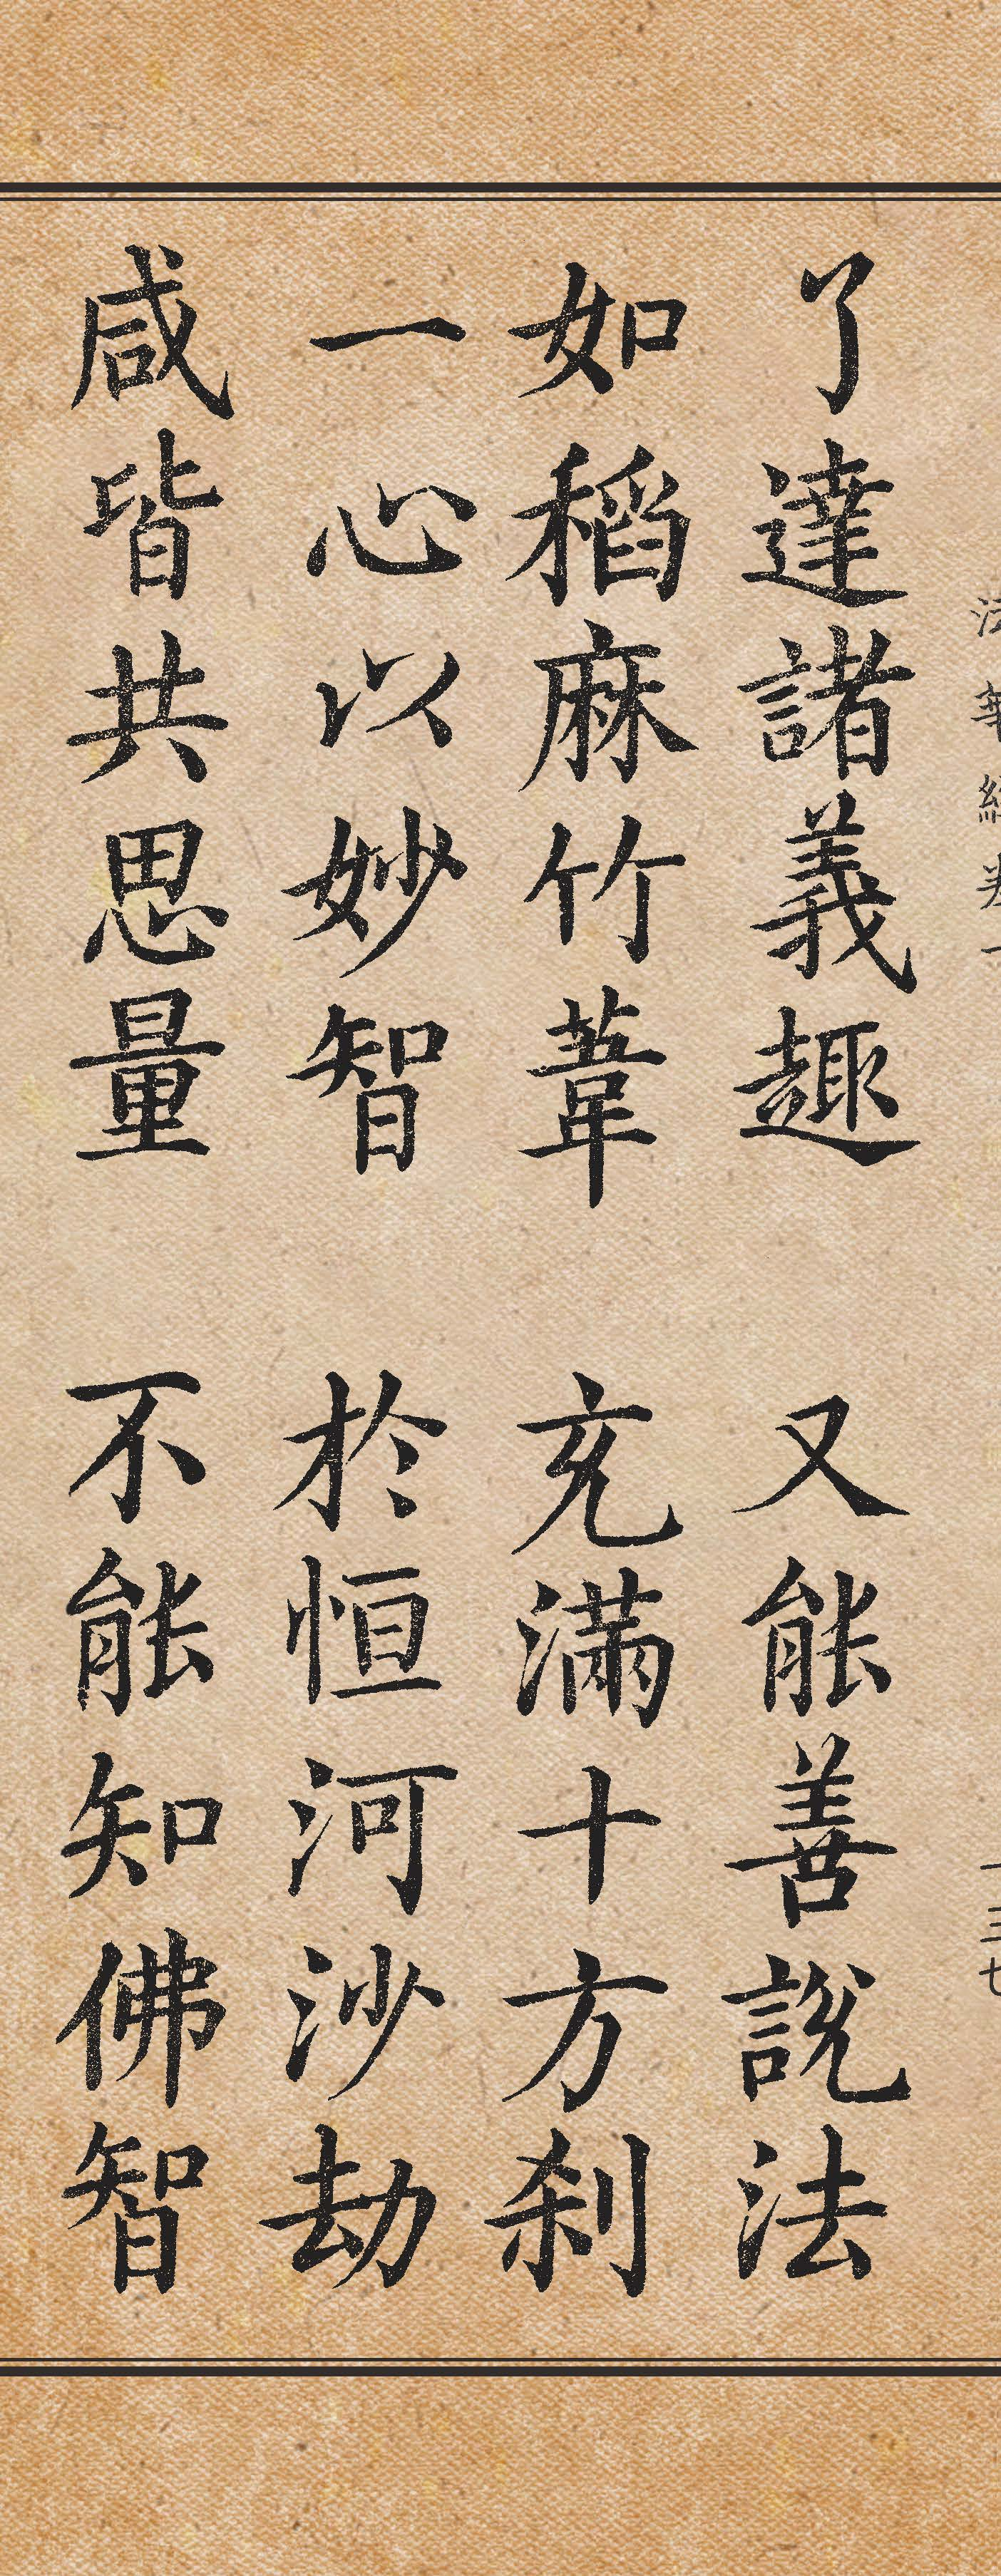 法華經卷一 一三七
了達諸義趣 又能善說法
如稻麻竹葦 充滿十方刹
一心以妙智 於恒河沙劫
咸皆共思量 不能知佛智